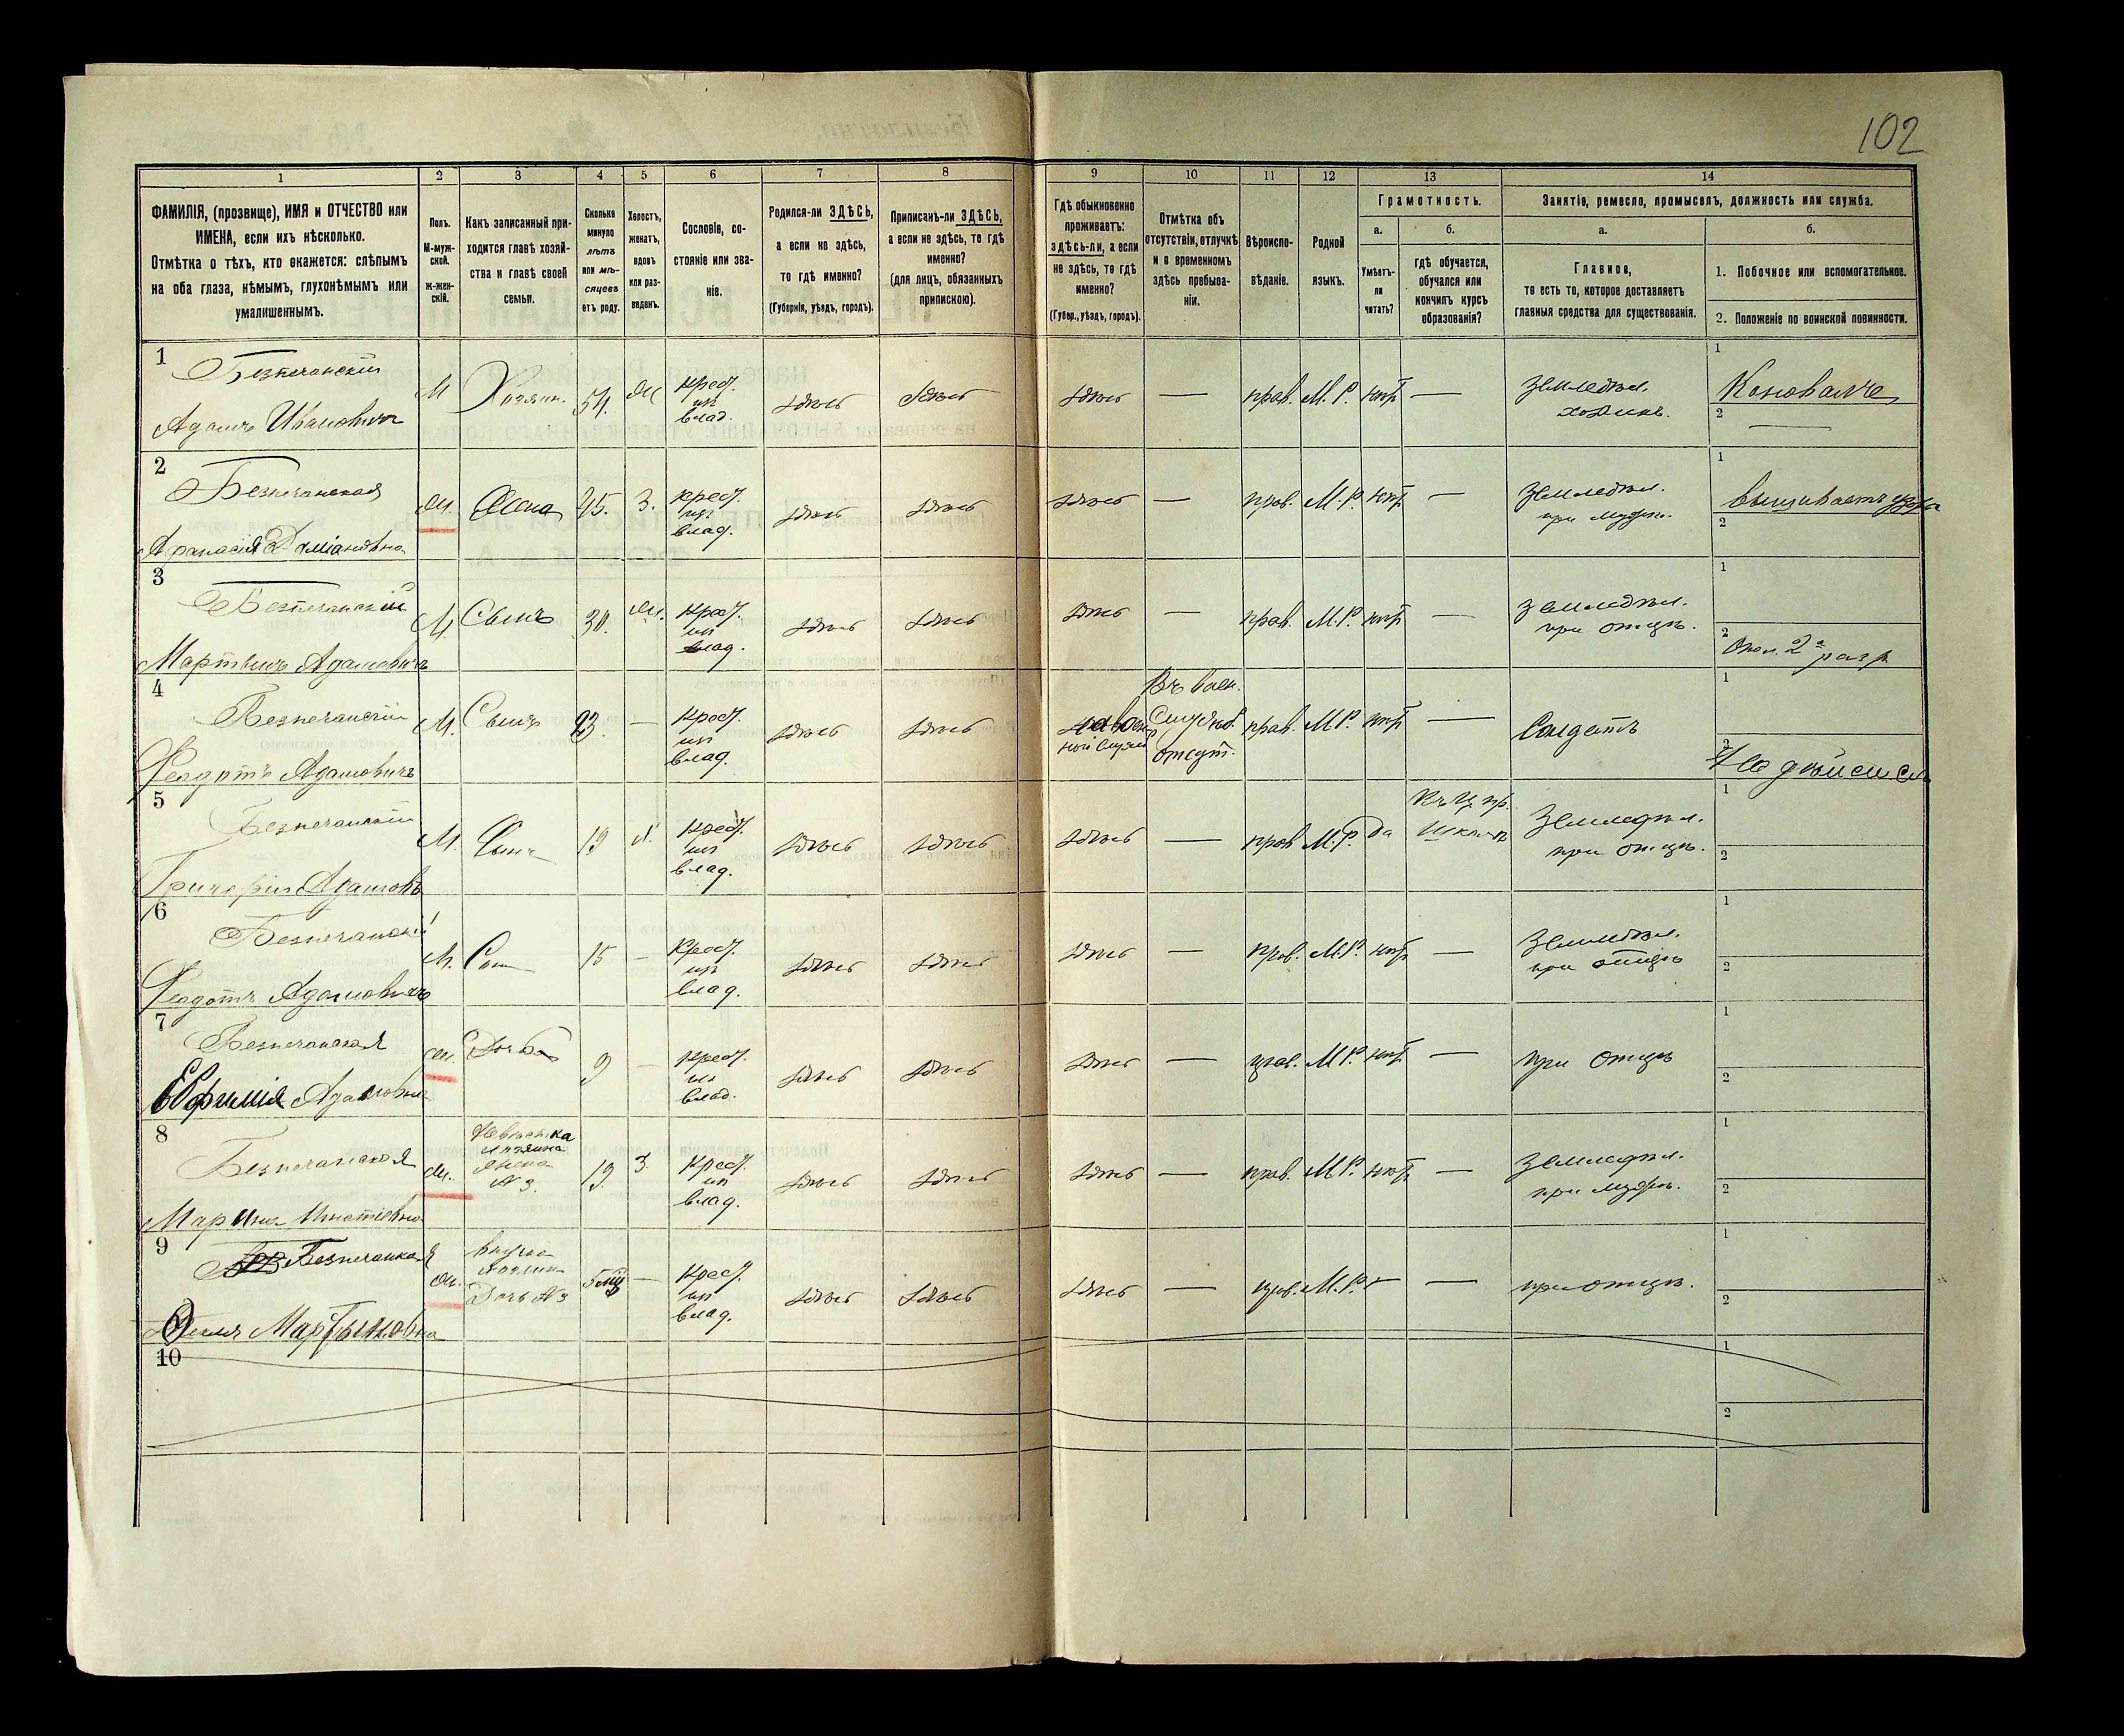 102
1 2 3 4 5 6 7 8 9 10 11 12 13 14
ФАМИЛІЯ, (прозвище), ИМЯ и ОТЧЕСТВО или ИМЕНА, если ихъ нѣсколько.
Отмѣтка о тѣхъ, кто окажется: слѣпымъ на оба глаза, нѣмымъ, глухонѣмымъ или умалишеннымъ.
Полъ.
М-муж-
ской.
Ж-жен-
скій.
Какъ записанный при-
ходится главѣ хозяй-
ства и главѣ своей
семьи.
Сколько
минуло
лѣтъ
или мѣ-
сяцевъ
отъ роду.
Холостъ,
женатъ,
вдовъ
или раз-
веденъ.
Сословіе, со-
стояніе или зва-
ніе.
Родился-ли ЗДѢСЬ,
а если не здѣсь,
то гдѣ именно?
(Губернія, уѣздъ, городъ).
Приписанъ-ли ЗДѢСЬ,
а если не здѣсь, то гдѣ
именно?
(для лицъ, обязанныхъ
припискою).
Гдѣ обыкновенно
проживаетъ:
здѣсь-ли, а если
не здѣсь, то гдѣ
именно?
(Губер., уѣздъ, городъ).
Отмѣтка объ
отсутствіи, отлучкѣ
и о временномъ
здѣсь пребыва-
ніи.
Вѣроиспо-
вѣданіе.
Родной
языкъ.
Грамотность.
а.
Умѣетъ-
ли
читать?
б.
гдѣ обучается,
обучался или
кончилъ курсъ
образованія?
Занятіе, ремесло, промыселъ, должность или служба.
а.
Главное,
то есть то, которое доставляетъ
главныя средства для существованія.
б.
1. Побочное или вспомогательное.
2. Положеніе по воинской повинности.
1
Безпечанскій
Адамъ Ивановичъ
М Хозяин. 54. Ж крест. из влад. здѣсь здѣсь здѣсь — прав. М. Р. нѣт — Земледѣл. хозяинъ.
1 Коновалъ
2 —
2
Безпечанская
Афанасія Даміановна
Ж. Жена 45. З. крест. из влад. здѣсь здѣсь здѣсь — прав. М. Р. нѣт — Земледѣл. при мужѣ.
1 вышиваетъ
2
3
Безпечанскій
Мартынъ Адамовичъ
М. Сынъ 30. Ж. крест. из влад. здѣсь здѣсь здѣсь — прав. М. Р. нѣт — Земледѣл. при отцѣ.
1
2 Опол. 2 разр.
4
Безпечанскій
Федотъ Адамовичъ
М. Сынъ 23. — крест. из влад. здѣсь здѣсь Въ воен. Службѣ отсут. прав. М. Р. нѣт — Солдатъ
1
2 На дѣйств.
5
Безпечанскій
Григорій Адамов
М. Сынъ 19 Х. крест. из влад. здѣсь здѣсь здѣсь — прав. М. Р. да Земледѣл. при отцѣ.
1
2
6
Безпечанскій
Федотъ Адамовичъ
М. Сын 15 — крест. из влад. здѣсь здѣсь здѣсь — прав. М. Р. нѣт — Земледѣл. при отцѣ
1
2
7
Безпечанская
Евфимія Адамовна
Ж. Дочь 9 — крест. из влад. здѣсь здѣсь здѣсь — прав. М. Р. нѣт — при отцѣ
1
2
8
Безпечанская
Марина Игнатіевна
Ж. Невѣстка хозяина Жена № 3. 19. З. крест. из влад. здѣсь здѣсь здѣсь — прав. М. Р. нѣт — Земледѣл. при мужѣ.
1
2
9
Безпечанская
Мартыновна
Ж. внучка хозяин Дочь № 3 5 мѣ — крест. из влад. здѣсь здѣсь здѣсь — прав. М. Р. — — при отцѣ.
1
2
10
1
2